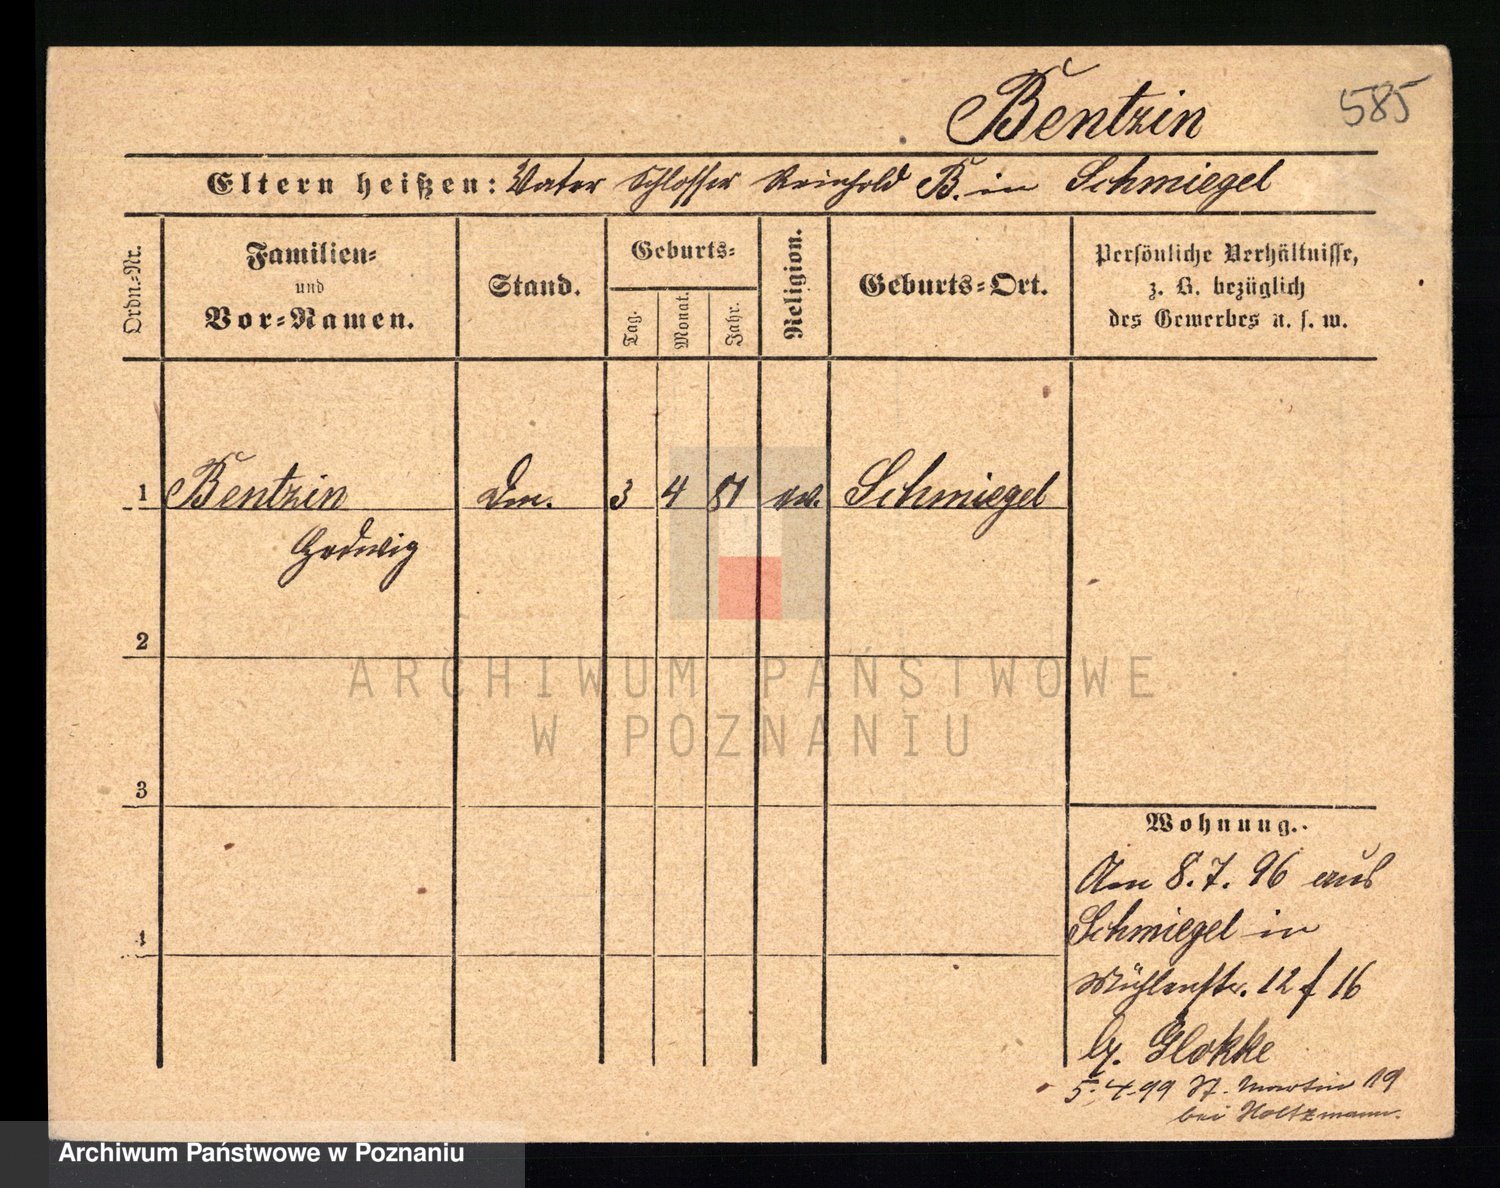 Bentzin
585
Eltern heißen: Vater Schlosser Reinhold B. in Schmiegel
Ordn.-Nr.
Familien-
und
Vor-Namen.
Stand.
Geburts-
Tag.
Monat.
Jahr.
Religion.
Geburts-Ort.
Persönliche Verhältnisse,
z. B. bezüglich
des Gewerbes u. s. w.
1 Bentzin 3 4 81 ev. Schmiegel
Hedwig
2
3
4
ARCHIWUM PAŃSTWOWE
W POZNANIU
Wohnung.
Am 8.7.96 aus
Schmiegel in
Mühlenstr. 12 f 16
by. Glokke
5.4.99 St. Martin 19
bei Holtzmann.
Archiwum Państwowe w Poznaniu